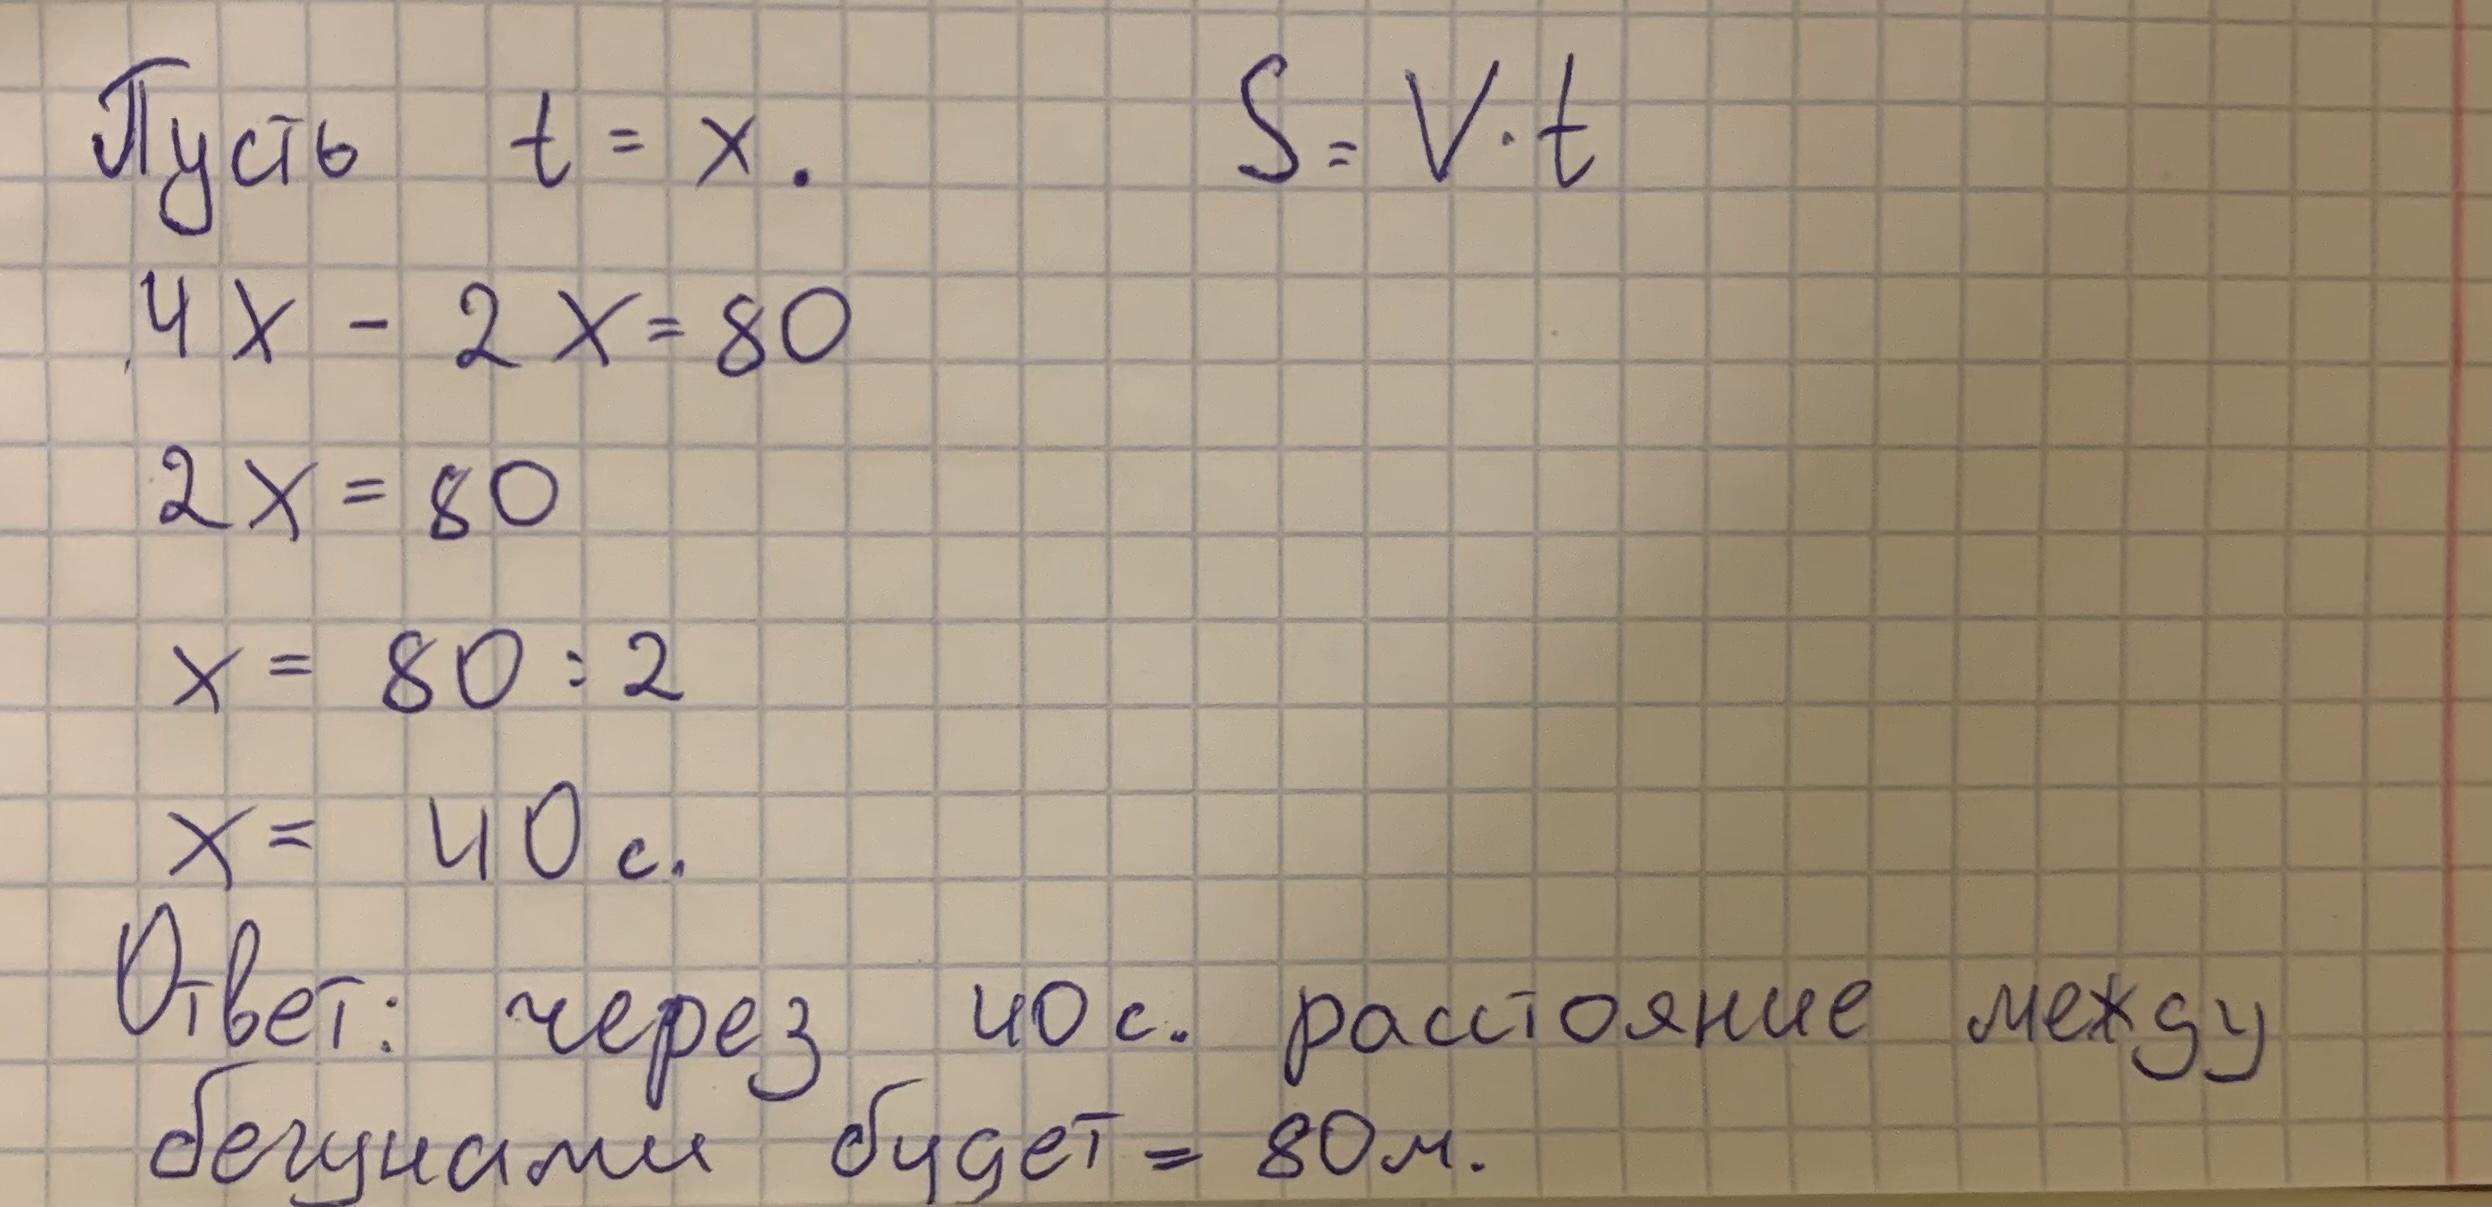 Пусть t = x. S = V · t
4x - 2x = 80
2x = 80
x = 80 : 2
x = 40 с.
Ответ: через 40 с. расстояние между
бегунами будет = 80 м.